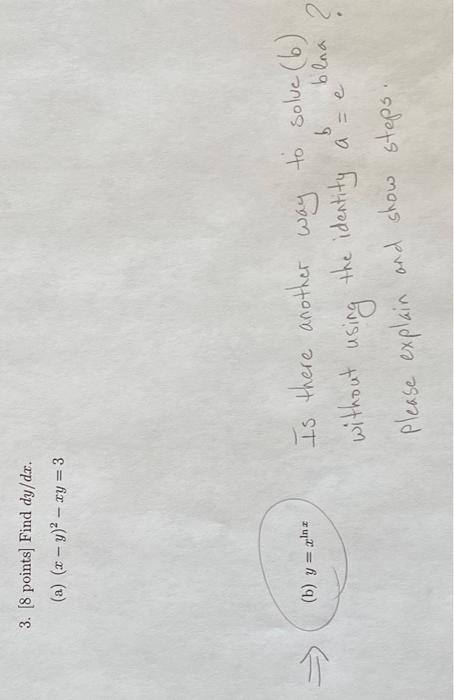 3. [8 points] Find dy/dx.
(a) (x − y)² − xy = 3
⇒ (b) y = x^{ln x}
Is there another way to solve (b)
without using the identity a^b = e^{b lna} ?
please explain and show steps.